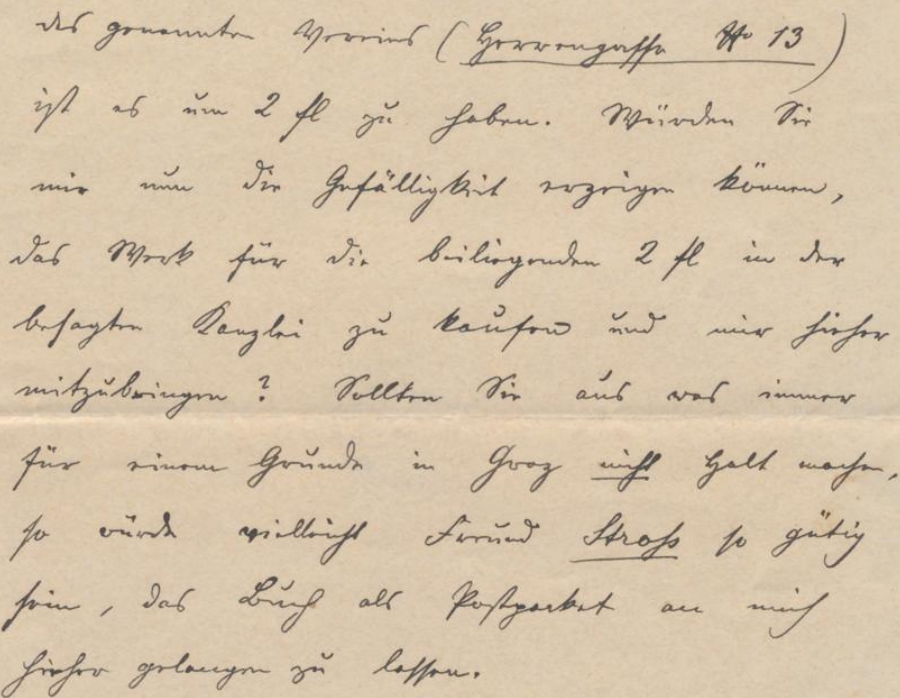 des genannten Vereins (Herrengasse No 13)
ist es um 2 fl zu haben. Würden Sie
mir nun die Gefälligkeit erzeigen können,
das Werk für die beiliegenden 2 fl in der
besagten Kanzlei zu kaufen und mir hieher
mitzubringen? Sollten Sie aus was immer
für einem Grunde in Graz nicht Halt machen,
so würde vielleicht Freund Stross so gütig
sein, das Buch als Postpacket an mich
hieher gelangen zu lassen.